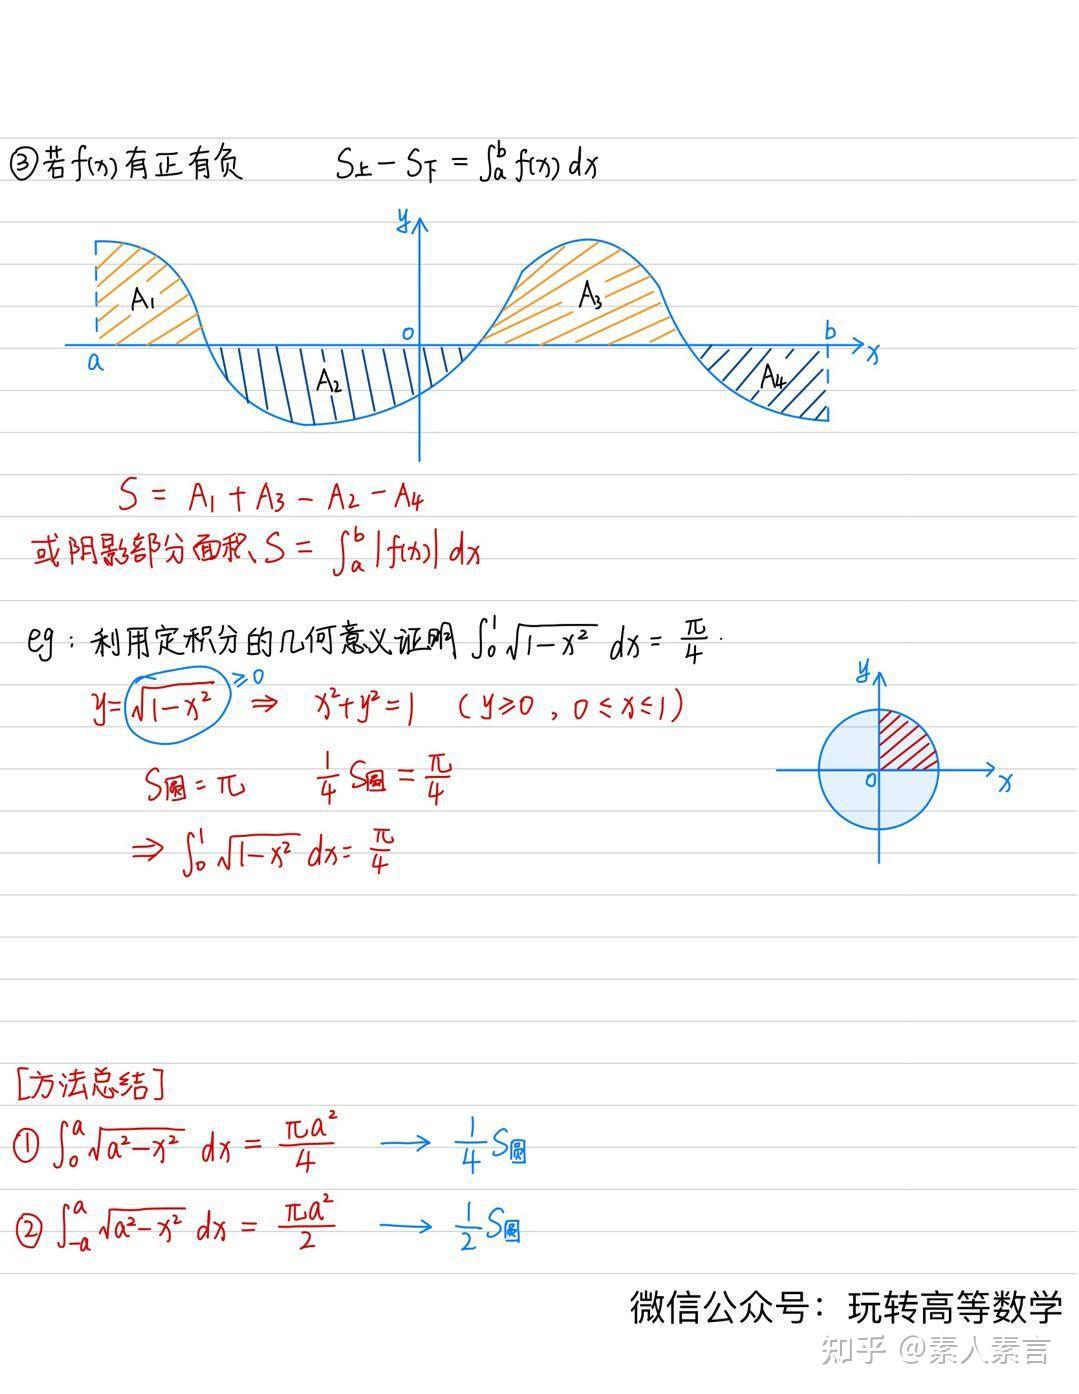 ③若f(x)有正有负 S上-S下=∫_a^b f(x)dx
y
A₁ A₃
a 0 b x
A₂ A₄
S = A₁+A₃-A₂-A₄
或阴影部分面积、S=∫_a^b |f(x)|dx
eg:利用定积分的几何意义证明∫_0^1 √(1-x²) dx = π/4.
y=√(1-x²) ≥0 ⇒ x²+y²=1 (y≥0, 0≤x≤1)
y
0 x
S圆=π 1/4 S圆=π/4
⇒ ∫_0^1 √(1-x²) dx= π/4
[方法总结]
① ∫_0^a √(a²-x²) dx = πa²/4 → 1/4 S圆
② ∫_-a^a √(a²-x²) dx = πa²/2 → 1/2 S圆
微信公众号：玩转高等数学
知乎 @素人素言